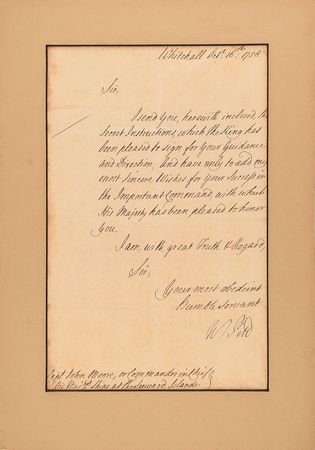 Whitehall Octr. 16th. 1758.
Sir,
I send You, herewith inclosed, the
Secret Instructions, which the King has
been pleased to sign for Your Guidance
and Direction, and have only to add my
most sincere Wishes for your Success in
the Important Command, with which
His Majesty has been pleased to honor
You.
I am, with great Truth & Regard,
Sir,
Your most obedient
Humble servant
W Pitt
Capt. John Moore, or Commander in Chief
His Majts. Ships at the Leeward Islands.